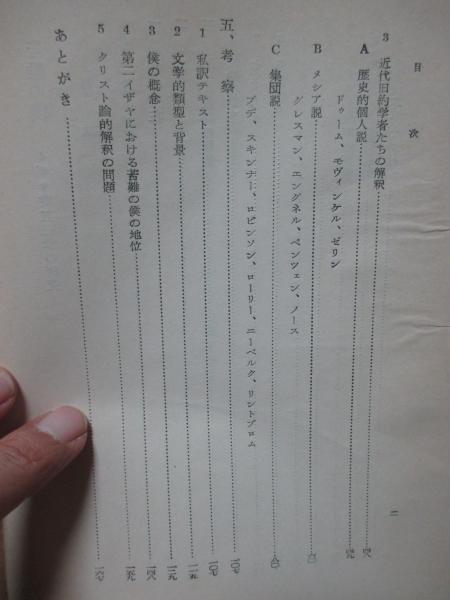 目次
3 近代旧約学者たちの解釈
A 歴史的個人説
ドゥーム、モヴィンケル、ゼリン
B メシア説
グレスマン、エングネル、ベンツェン、ノース
C 集団説
ブデ、スキンナー、ロビンソン、ローリー、ニーベルク、リントブロム
五、考察
1 私訳テキスト
2 文学的類型と背景
3 僕の概念
4 第二イザヤにおける苦難の僕の地位
5 クリスト論的解釈の問題
あとがき
二